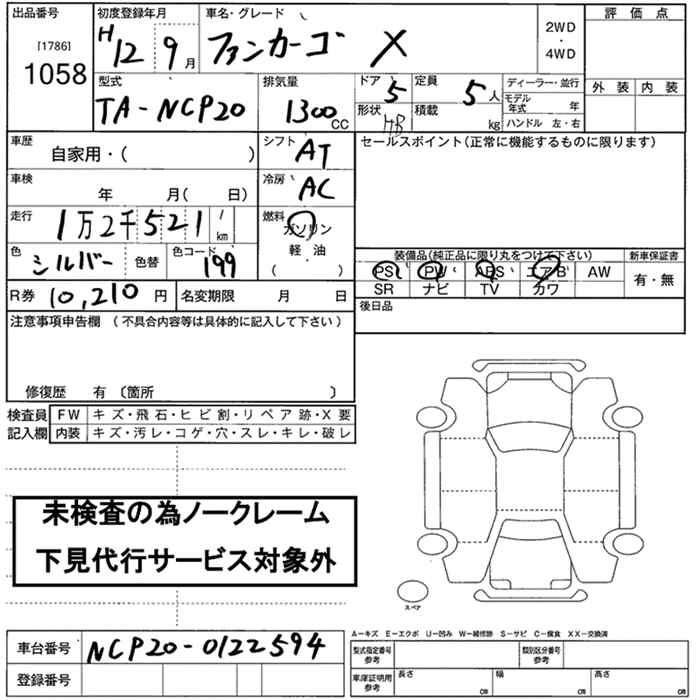 出品番号 初度登録年月 車名・グレード 評価点
[1786]
1058
H12 9月 ファンカーゴ X 2WD・4WD
外装 内装
型式 排気量 ドア 定員 ディーラー・並行
TA-NCP20 1300CC 5 5人 モデル年式 年
形状 HB 積載 kg ハンドル 左・右
車歴 シフト セールスポイント(正常に機能するものに限ります)
自家用・( ) AT
車検 冷房
年 月( 日) AC
走行 燃料
1万2千521 /km ガソリン
軽・油
( )
色 シルバー 色替 色コード 199
装備品(純正品に限り丸をつけて下さい) 新車保証書
PS PW ABS エアB AW 有・無
SR ナビ TV カワ
R券 10,210円 名変期限 月 日
後日品
注意事項申告欄(不具合内容等は具体的に記入して下さい)
修復歴 有〔箇所 〕
検査員 FW キズ・飛石・ヒビ割・リペア跡・X要
記入欄 内装 キズ・汚レ・コゲ・穴・スレ・キレ・破レ
未検査の為ノークレーム
下見代行サービス対象外
スペア
A-キズ E-エクボ U-凹み W-補修跡 S-サビ C-腐食 XX-交換済
車台番号 NCP20-0122594
型式指定番号 参考 類別区分番号 参考
登録番号
車庫証明用 参考 長さ cm 幅 cm 高さ cm